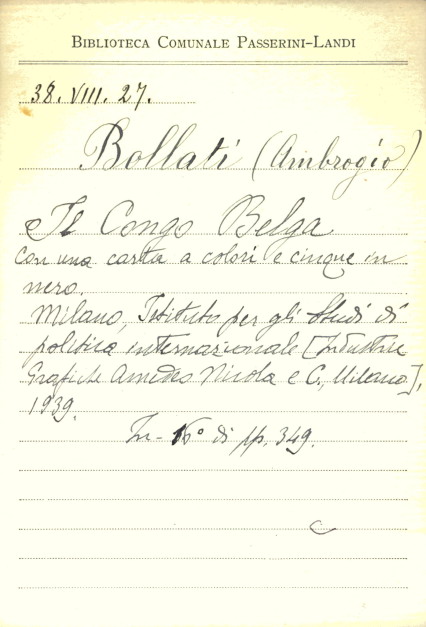 BIBLIOTECA COMUNALE PASSERINI-LANDI
38. VIII. 27.
Bollati (Ambrogio)
Il Congo Belga
Con una carta a colori e cinque in
nero.
Milano, Istituto per gli Studi di
politica internazionale [Industrie
Grafiche Amedeo Nicola e C., Milano],
1939.
In-16° di pp. 349.
C